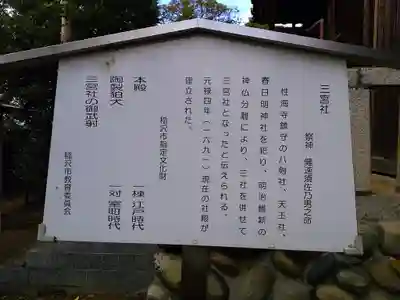 三宮社
祭神 健速須佐乃男之命
性海寺鎮守の八剱社、天王社、
春日明神社を祀り、明治維新の
神仏分離により、三社を併せて
三宮社となったと伝えられる。
元禄四年(一六九一)現在の社殿が
建立された。
稲沢市指定文化財
本殿 一棟 江戸時代
陶製狛犬 一対 室町時代
三宮社の御武射
稲沢市教育委員会